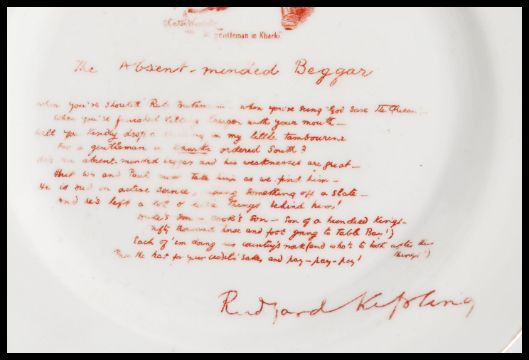 gentleman in Kharki
The Absent-minded Beggar
when you've shouted "Rule Britannia", when you've sung "God Save the Queen"
When you've finished killing Kruger with your mouth—
Will you kindly drop a shilling in my little tambourine
For a gentleman in Kharki ordered South?
He's an absent-minded beggar and his weaknesses are great—
But we and Paul must take him as we find him—
He is out on active service, wiping something off a slate—
And he's left a lot o' little things behind him!
Duke's son — Cook's son — Son of a hundred Kings—
Fifty thousand horse and foot going to Table Bay!)
Each of 'em doing his country's work (and who's to look after the
things?)
Pass the hat for your credit's sake, and pay — pay — pay!
Rudyard Kipling